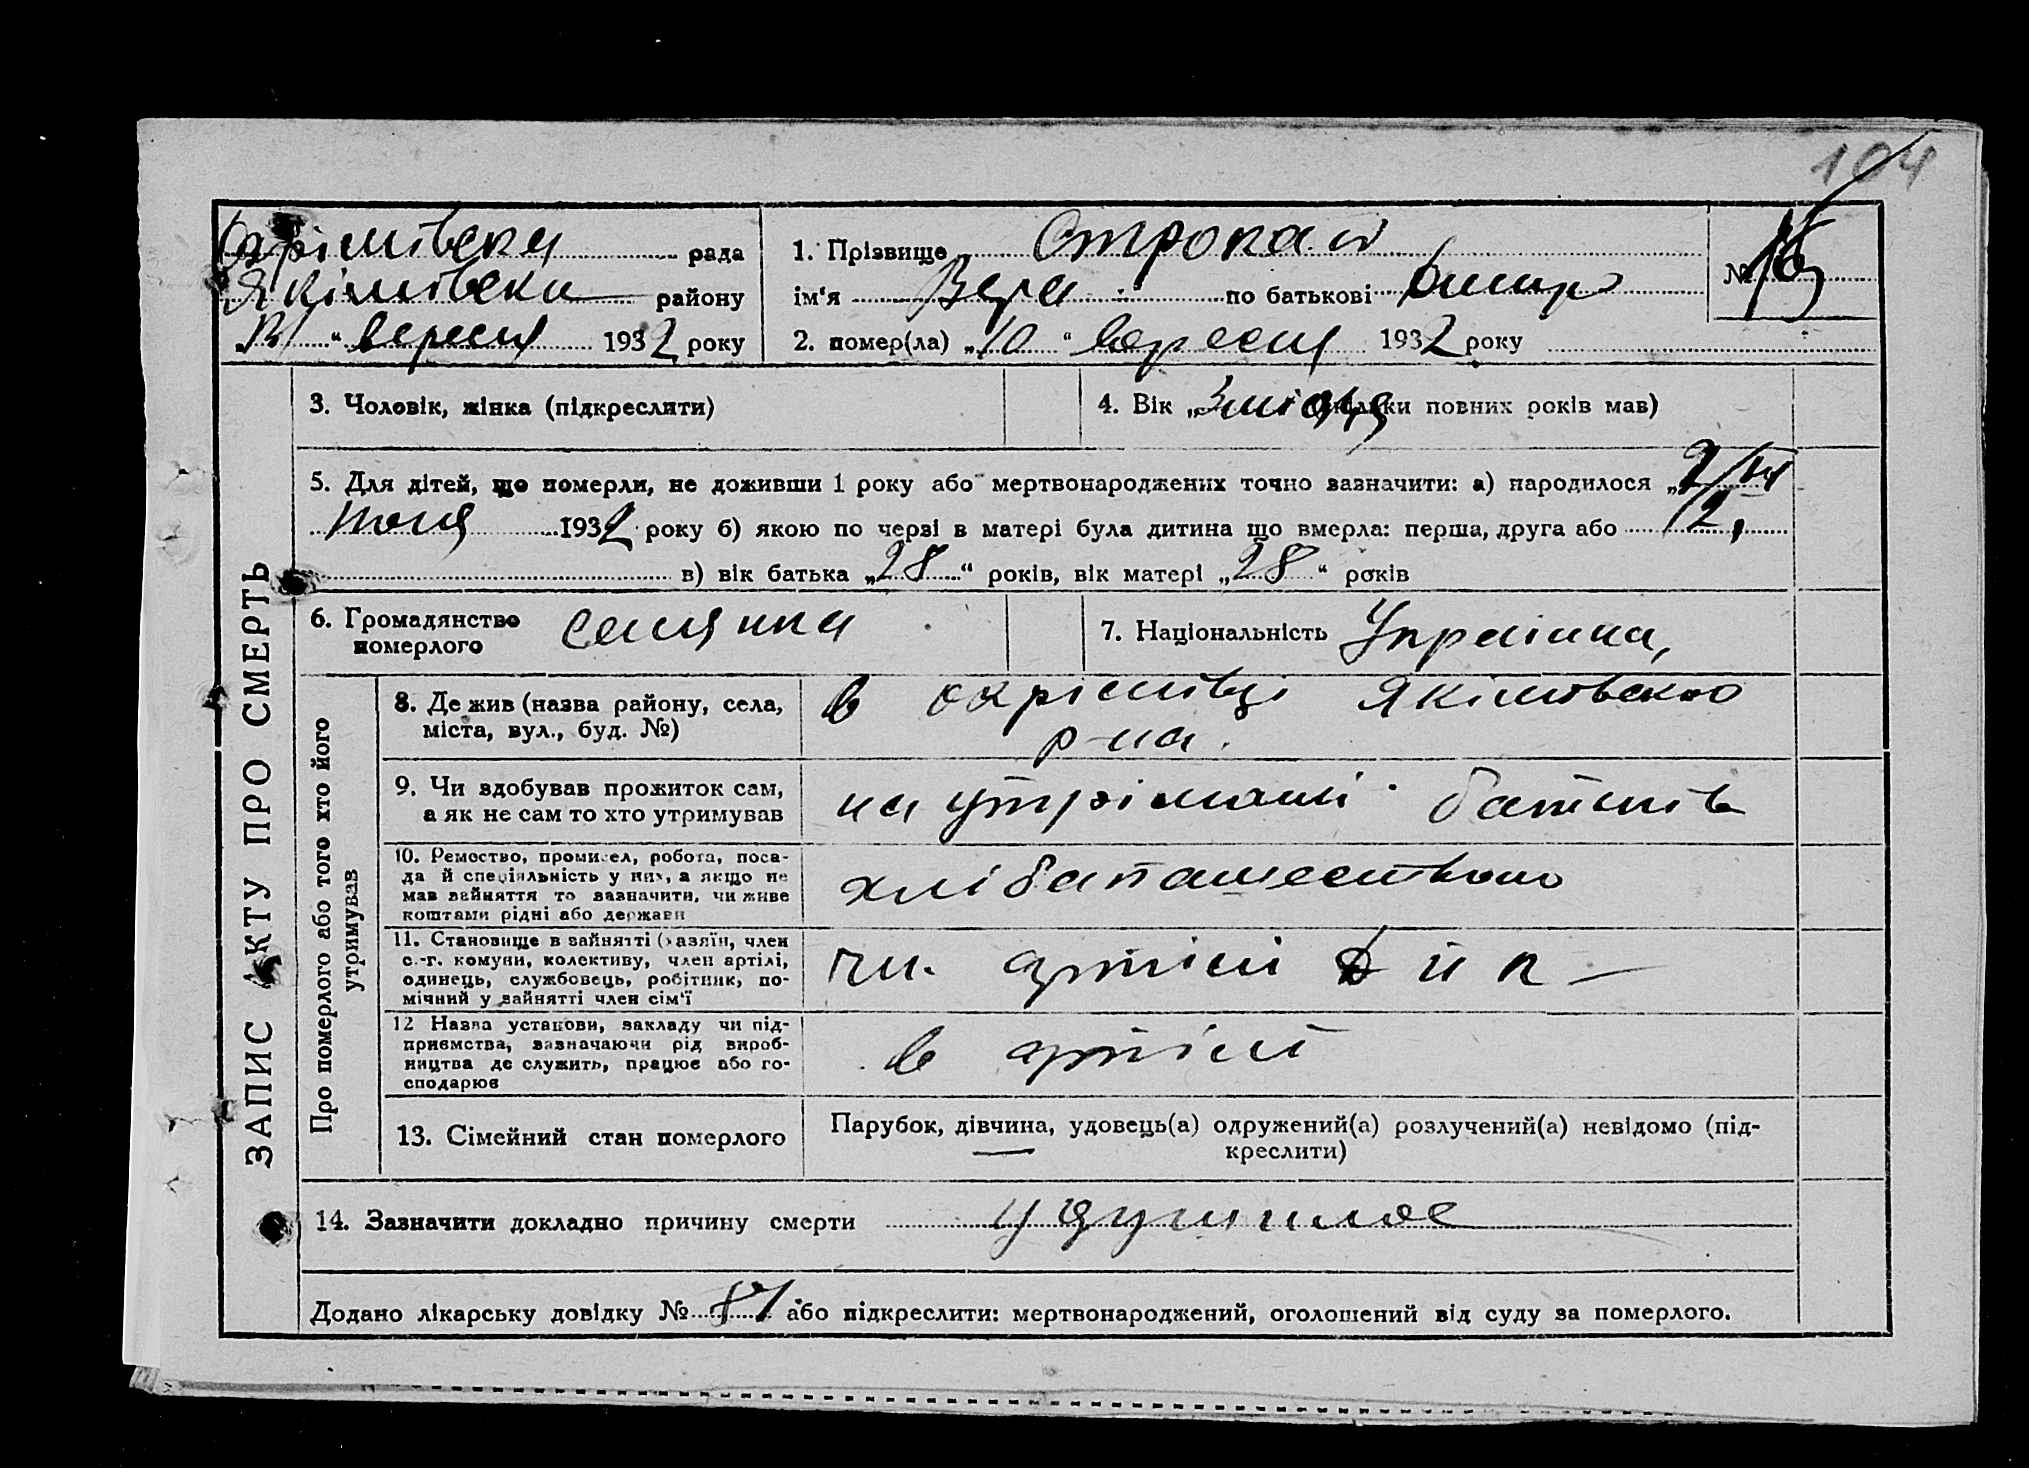 104
Окрімівска рада
Якімівска району
" вересня 1932 року
1. Прізвище Строкай
ім'я Вера по батькові
№ 16
2. помер(ла) „10" вересня 1932 року
3. Чоловік, жінка (підкреслити)
4. Вік „3 місяця (скільки повних років мав)
5. Для дітей, що померли, не доживши 1 року або мертвонароджених точно зазначити: а) народилося „2/VI
июня 1932 року б) якою по черзі в матері була дитина що вмерла: перша, друга або 2,
в) вік батька „28" років, вік матері „28" років
6. Громадянство
померлого
селянка
7. Національність Українка,
8. Де жив (назва району, села,
міста, вул., буд. №)
в окрімівці Якімовского
р-на.
9. Чи здобував прожиток сам,
а як не сам то хто утримував
на утріманні батьків
10. Ремество, промисел, робота, поса-
да й спеціяльність у них, а якщо не
мав зайняття то зазначити, чи живе
коштами рідні або держави
11. Становище в зайнятті (хазяїн, член
с.-г. комуни, колективу, член артілі,
одинець, службовець, робітник, по-
мічний у зайнятті член сім'ї
чл. артілі
12 Назва установи, закладу чи під-
приємства, зазначаючи рід вироб-
ництва де служить, працює або го-
сподарює
в артілі
13. Сімейний стан померлого
Парубок, дівчина, удовець(а) одружений(а) розлучений(а) невідомо (під-
креслити)
14. Зазначити докладно причину смерти
Додано лікарську довідку № 87 або підкреслити: мертвонароджений, оголошений від суду за померлого.
ЗАПИС АКТУ ПРО СМЕРТЬ
Про померлого або того хто його
утримував